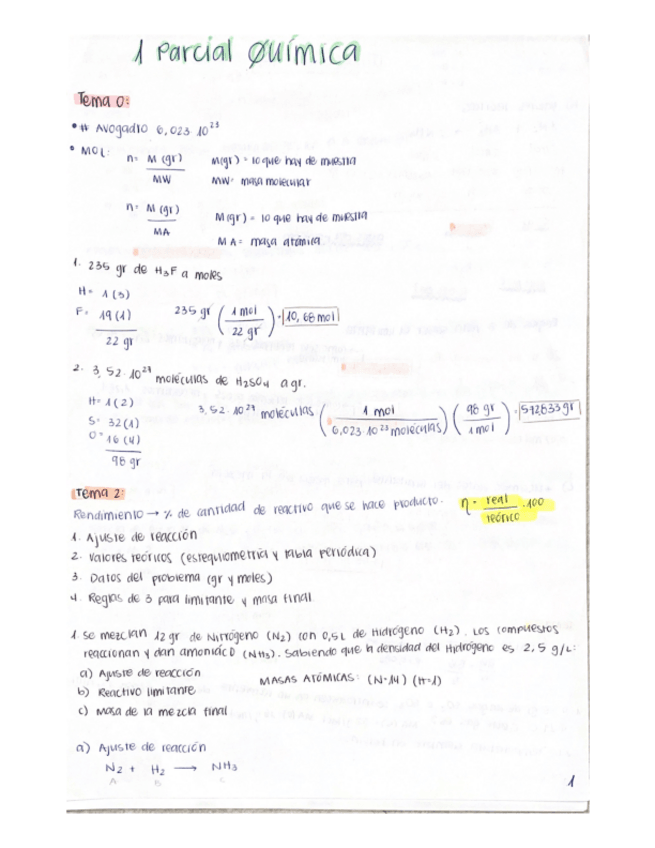 1 Parcial Química
Tema 0:
• # Avogadro 6,023·10²³
• MOL: n= M (gr) / MW M(gr) = lo que hay de muestra
MW= masa molecular
n= M (gr) / MA M(gr) = lo que hay de muestra
MA= masa atómica
1. 235 gr de H₃F a moles
H= 1 (3)
F= 19 (1)
22 gr
235 gr ( 1 mol / 22 gr ) = 10,68 mol
2. 3,52·10²⁴ moléculas de H₂SO₄ a gr.
H= 1 (2)
S= 32 (1)
O= 16 (4)
98 gr
3,52·10²⁴ moléculas ( 1 mol / 6,023·10²³ moléculas ) ( 98 gr / 1 mol ) = 572,833 gr
Tema 2:
Rendimiento → % de cantidad de reactivo que se hace producto. η = real / teórico · 100
1. Ajuste de reacción
2. Valores teóricos (estequiometría y tabla periódica)
3. Datos del problema (gr y moles)
4. Reglas de 3 para limitante y masa final
1. Se mezclan 12 gr de Nitrógeno (N₂) con 0,5 L de Hidrógeno (H₂). Los compuestos
reaccionan y dan amoniáco (NH₃). Sabiendo que la densidad del Hidrógeno es 2,5 g/L:
a) Ajuste de reacción
MASAS ATÓMICAS: (N=14) (H=1)
b) Reactivo limitante
c) Masa de la mezcla final
a) Ajuste de reacción
N₂ + H₂ → NH₃
A B C
1